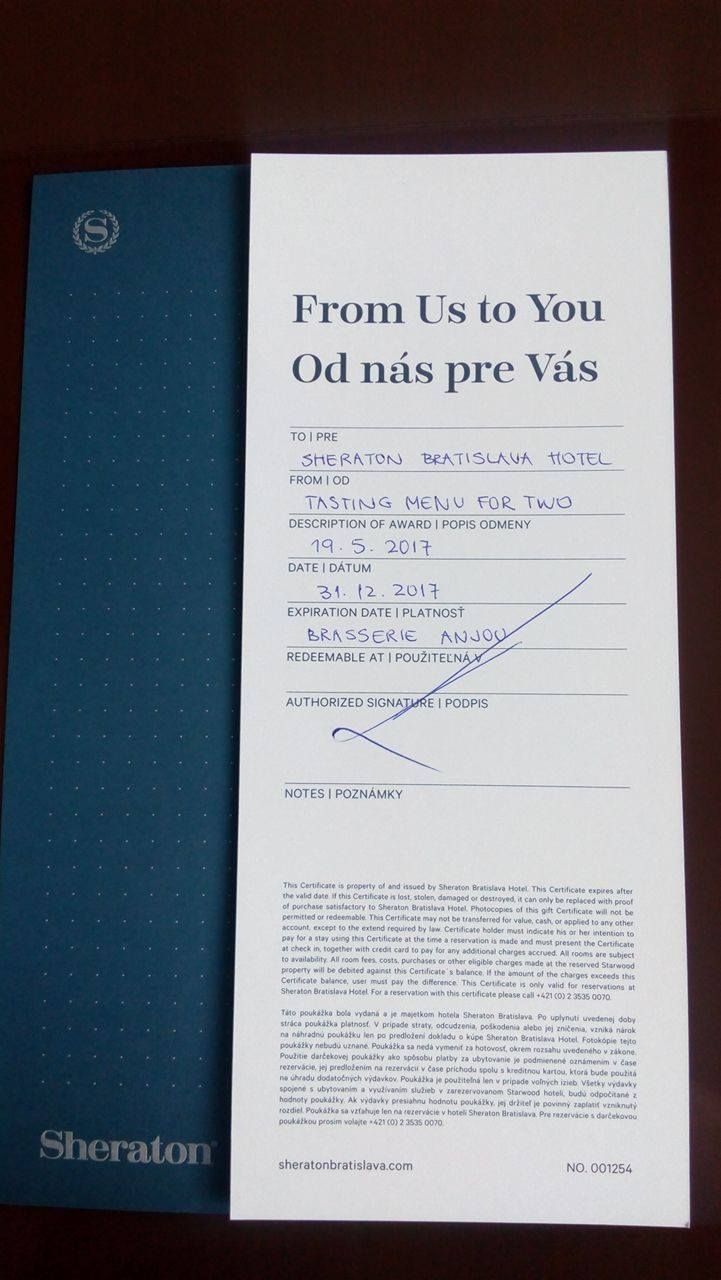 S
From Us to You
Od nás pre Vás
TO | PRE
SHERATON BRATISLAVA HOTEL
FROM | OD
TASTING MENU FOR TWO
DESCRIPTION OF AWARD | POPIS ODMENY
19. 5. 2017
DATE | DÁTUM
31. 12. 2017
EXPIRATION DATE | PLATNOSŤ
BRASSERIE ANJOU
REDEEMABLE AT | POUŽITEĽNÁ V
AUTHORIZED SIGNATURE | PODPIS
NOTES | POZNÁMKY
This Certificate is property of and issued by Sheraton Bratislava Hotel. This Certificate expires after
the valid date. If this Certificate is lost, stolen, damaged or destroyed, it can only be replaced with proof
of purchase satisfactory to Sheraton Bratislava Hotel. Photocopies of this gift Certificate will not be
permitted or redeemable. This Certificate may not be transferred for value, cash, or applied to any other
account, except to the extend required by law. Certificate holder must indicate his or her intention to
pay for a stay using this Certificate at the time a reservation is made and must present the Certificate
at check in, together with credit card to pay for any additional charges accrued. All rooms are subject
to availability. All room fees, costs, purchases or other eligible charges made at the reserved Starwood
property will be debited against this Certificate´s balance. If the amount of the charges exceeds this
Certificate balance, user must pay the difference. This Certificate is only valid for reservations at
Sheraton Bratislava Hotel. For a reservation with this certificate please call +421 (0) 2 3535 0070.
Táto poukážka bola vydaná a je majetkom hotela Sheraton Bratislava. Po uplynutí uvedenej doby
stráca poukážka platnosť. V prípade straty, odcudzenia, poškodenia alebo jej zničenia, vzniká nárok
na náhradnú poukážku len po predložení dokladu o kúpe Sheraton Bratislava Hotel. Fotokópie tejto
poukážky nebudú uznané. Poukážka sa nedá vymeniť za hotovosť, okrem rozsahu uvedeného v zákone.
Použitie darčekovej poukážky ako spôsobu platby za ubytovanie je podmienené oznámením v čase
rezervácie, jej predložením na rezervácii v čase príchodu spolu s kreditnou kartou, ktorá bude použitá
na úhradu dodatočných výdavkov. Poukážka je použiteľná len v prípade voľných izieb. Všetky výdavky
spojené s ubytovaním a využívaním služieb v zarezervovanom Starwood hoteli, budú odpočítané z
hodnoty poukážky. Ak výdavky presiahnu hodnotu poukážky, jej držiteľ je povinný zaplatiť vzniknutý
rozdiel. Poukážka sa vzťahuje len na rezervácie v hoteli Sheraton Bratislava. Pre rezervácie s darčekovou
poukážkou prosím volajte +421 (0) 2 3535 0070.
Sheraton
sheratonbratislava.com NO. 001254